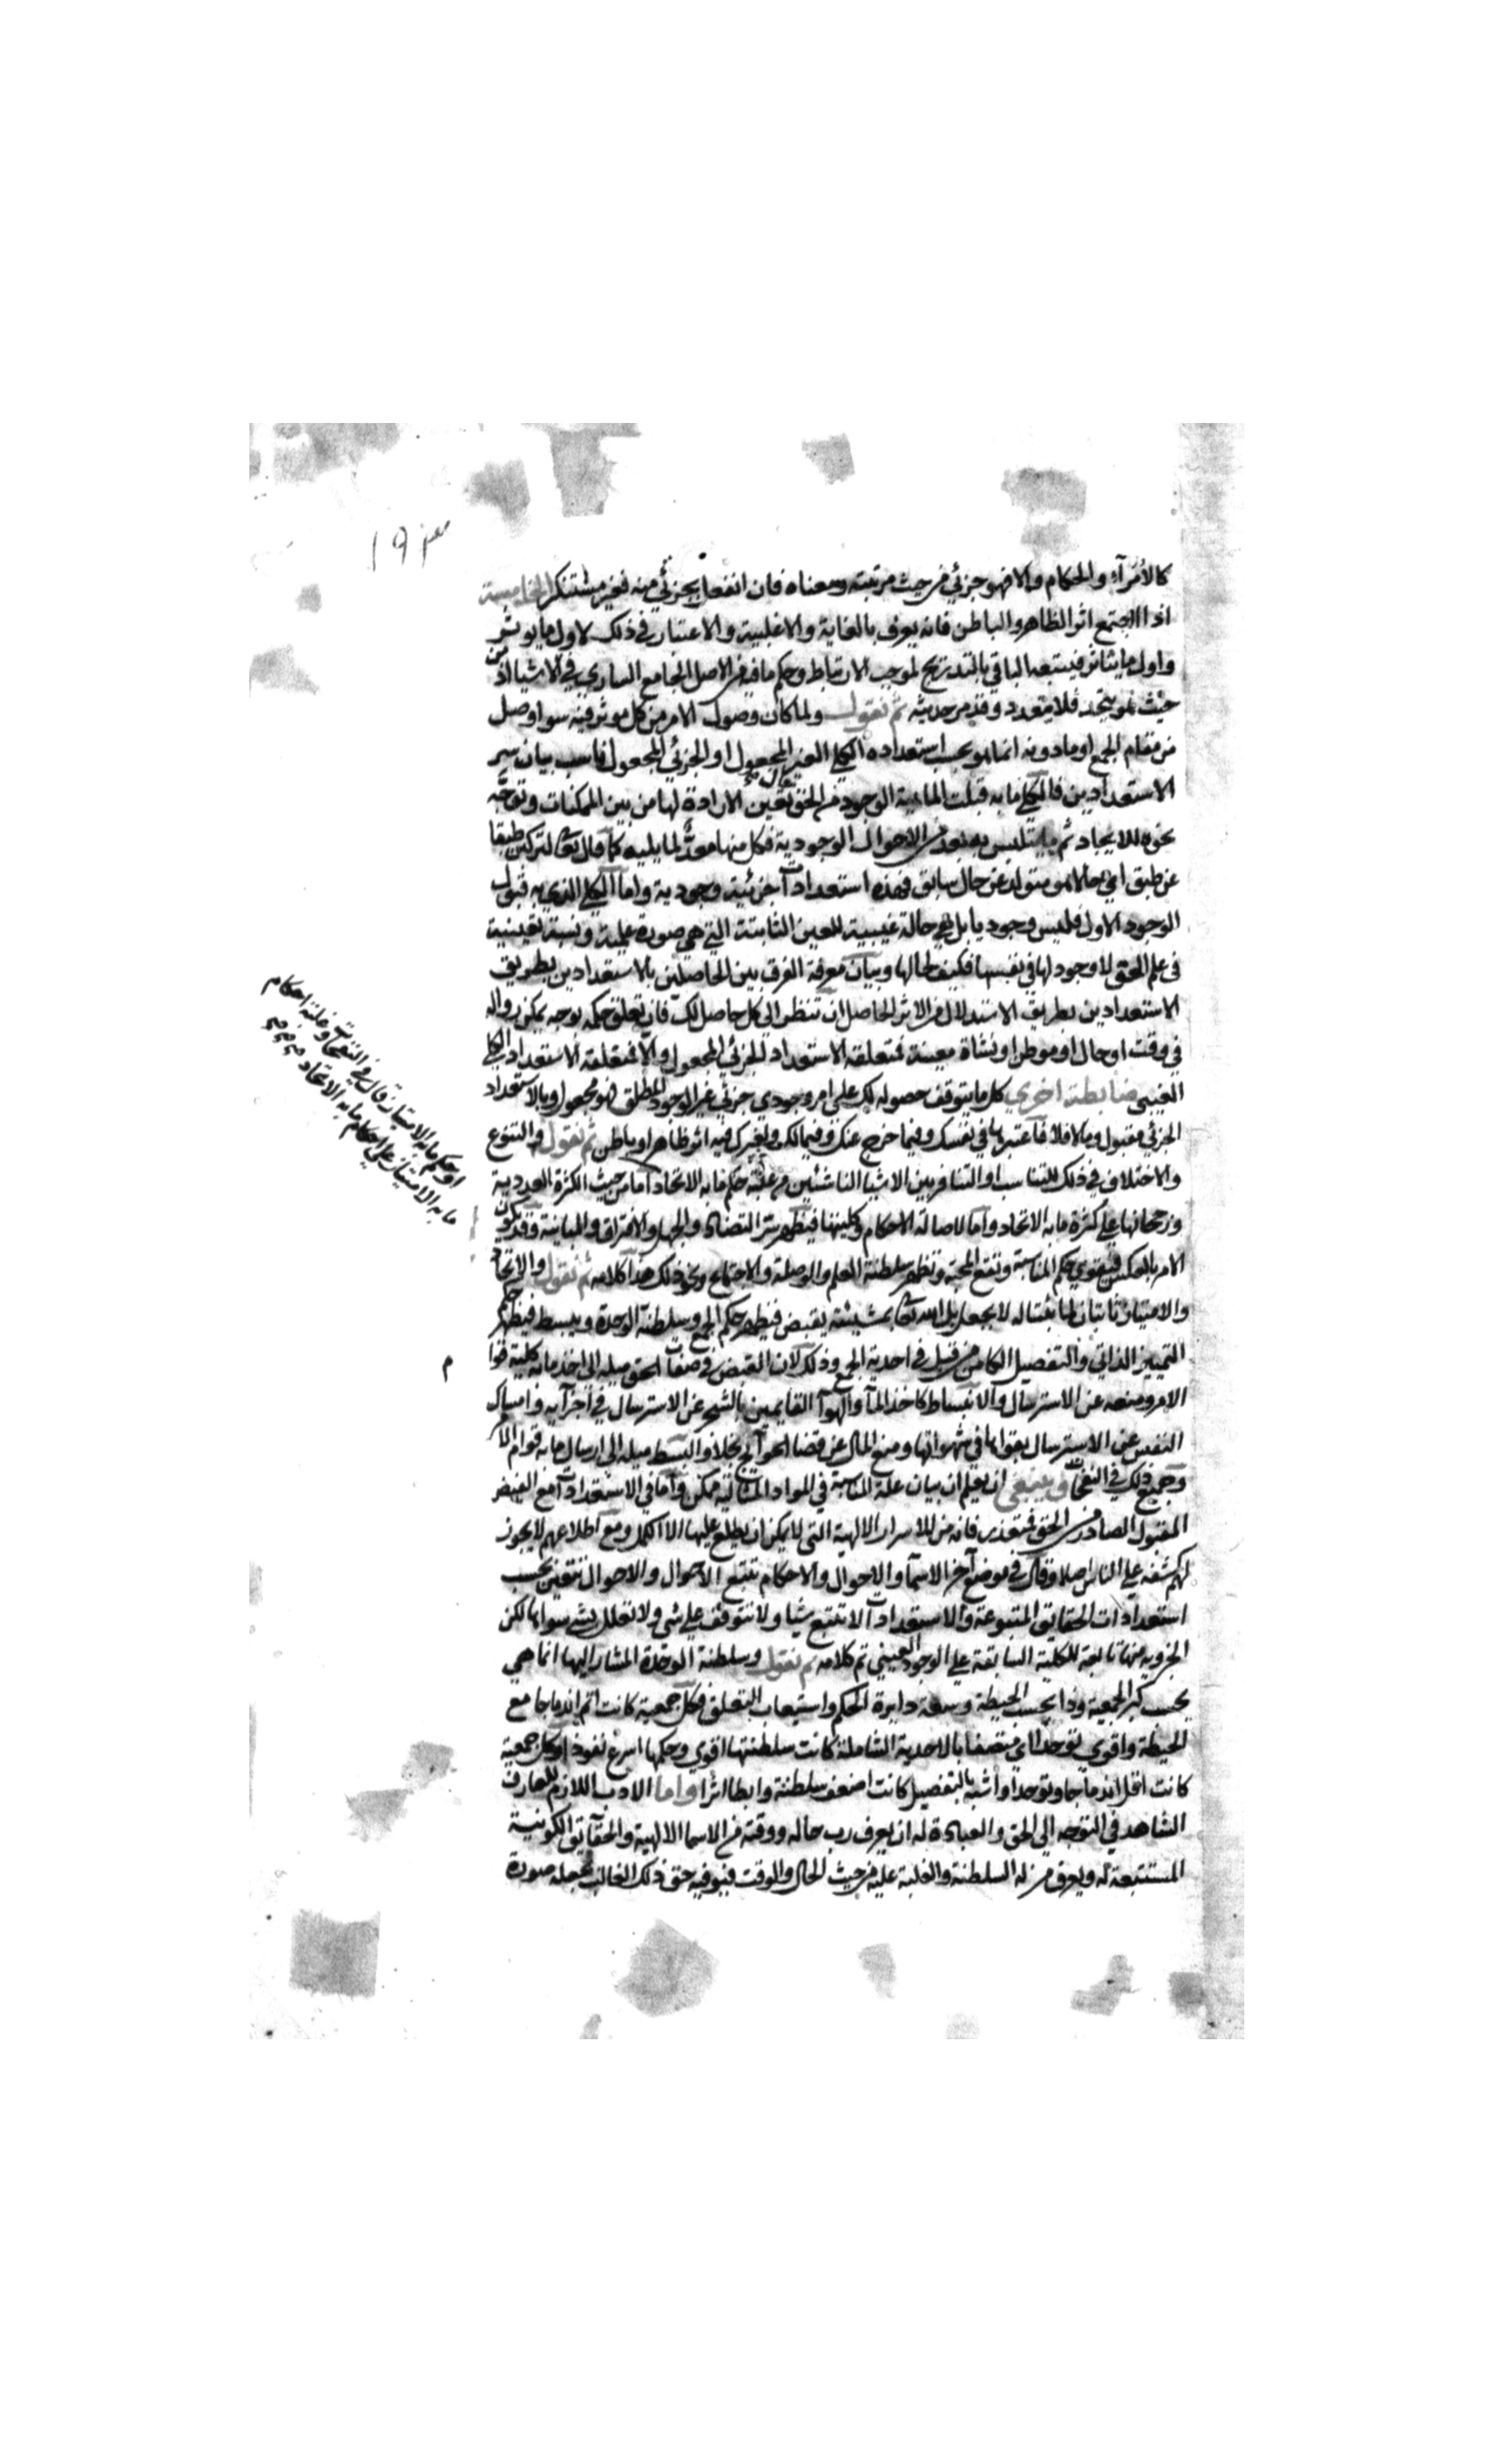 ١٩٣
كالأمرآء والحكام والا فهو جزئي من حيث مرتبته ومعناه فان انفعل بجزئي منه فغير مستنكر الخامسة
اذا اجتمع اثر الظاهر والباطن فانه يعرف بالغاية والاغلبية والاعتبار في ذلك لاول ما يوثر
واول ما يتاثر فيتبعه الباقي بالتدريج لموجب الارتباط وحكم ما فيه من الاصل الجامع الساري في الاشيا اذ من
حيث هو يتحد فلا يتعدد وقد مر حديثه ثم نقول ولما كان وصول الامر من كل موثر فيه سوا وصل
من مقام الجمع او ما دونه انما هو بحسب استعداده الكلي الغير المجعول او الجزئي المجعول ناسب بيان سر
الاستعدادين فالكلي ما به قبلت الماهية الوجود من الحق تعالى تعين الارادة لها من بين الممكنات وتوجه
نحوه للايجاد ثم ما يتلبس به بعد من الاحوال الوجودية فكل منها معد لما يليه كما قال تعالى لتركبن طبقا
عن طبق اي حالا هو متولد عن حال سابق فهذه استعدادات جزئية وجودية واما الكلي الذي به قبول
الوجود الاول فليس وجوديا بل هي حالة غيبية للعين الثابتة التي هي صورة علمية ونسبة تعينية
في علم الحق لا وجود لها في نفسها فكيف لحالها وبيان معرفة الفرق بين الحاصلين بالاستعدادين بطريق
الاستعدادين بطريق الاستدلال من الاثر الحاصل ان تنظر الى كل حاصل لك فان تعلق حكمه بوجه يمكن زواله
في وقت او حال او موطن او نشاة معينة فمتعلقه الاستعداد الجزئي المجعول والا فمتعلقه الاستعداد الكلي
الغيبي ضابطة اخري كل ما يتوقف حصوله لك على امر وجودي جزئي غير الوجود المطلق فهو مجعول وبالاستعداد
الجزئي مقبول وما لا فلا فاعتبرها في نفسك وفيما خرج عنك وفيما لك ولغيرك فيه اثر ظاهر او باطن ثم نقول والتنوع
والاختلاف في ذلك للتناسب او التنافر بين الاشيا الناشئين من غلبة حكم ما به الاتحاد اما من حيث الكثرة العددية
ورجحانها على كثرة ما به الاتحاد واما لاصالة الاحكام وكليتها فيظهر سر التضاد والجهل والافتراق والمباينة وقد يكون
الامر بالعكس فيقوي حكم المناسبة وتقع المحبة وتظهر سلطنة العلم والوصلة والاجتماع ونحو ذلك هذا كلامه ثم نقول والاتحاد
والامتياز ثابتان لما يقتاله لا بجعل بل الله تعالى بمشيئته يقبض فيظهر حكم الجمع وسلطنة الوحدة ويبسط فيظهر حكم
التمييز الذاتي والتفصيل الكامن من قبل في احدية الجمع وذلك لان القبض في صفات الحق ميله الى اخذ ما به كلية قوام
الامر ومنعه عن الاسترسال والانبساط كاخذ المآ والهوآ القايمين بالشجر عن الاسترسال في اجزآيه وامساك
النفس عن الاسترسال بقواها في شهواتها ومنع المال عن قضا الحوآيج بخلا والبسط ميله الى ارسال ما به قوام الامر
وجميع ذلك في النفحات وينبغي ان يعلم ان بيان علة المناسبة في المواد المثالية ممكن واما في الاستعدادات مع الفيض
المقبول الصادر من الحق فمتعذر فانه من الاسرار الالهية التي لا يمكن ان يطلع عليها الا الكمل ومع اطلاعهم لا يجوز
لهم كشفه على الناس اصلا وقال في موضع آخر الاسمآ والاحوال والاحكام تتبع الاحوال والاحوال تتعين بحسب
استعدادات الحقايق المتبوعة والاستعدادات لا تتبع شيا ولا تتوقف على شي ولا تعلل بشي سواها لكن
الجزوية منها تابعة للكلية السابقة على الوجود العيني تم كلامه ثم نقول وسلطنة الوحدة المشار اليها انما هي
بحسب كبر الجمعية وذا بحسب الحيطة وسعة دايرة الحكم واستيعاب التعلق فكل جمعية كانت اتم اندماجا مع
الحيطة واقوي توحدا اي متصفا بالاحدية الشاملة كانت سلطنتها اقوي وحكمها اسرع نفوذا وكل جمعية
كانت اقل اندماجا وتوحدا واشبه بالتفصيل كانت اضعف سلطنة وابطا اثرا واما الادب اللازم للعارف
الشاهد في التوجه الى الحق والعبادة له ان يعرف رب حاله ووقته من الاسما الالهية والحقآيق الكونية
المستتبعة له ويعرف من له السلطنة والغلبة عليه من حيث الحال والوقت فيوفيه حق ذلك الغالب بجعله صورة
او حكم ما به الامتياز قال في النفحات وغلبة احكام
ما به الامتياز على احكام ما به الاتحاد
م